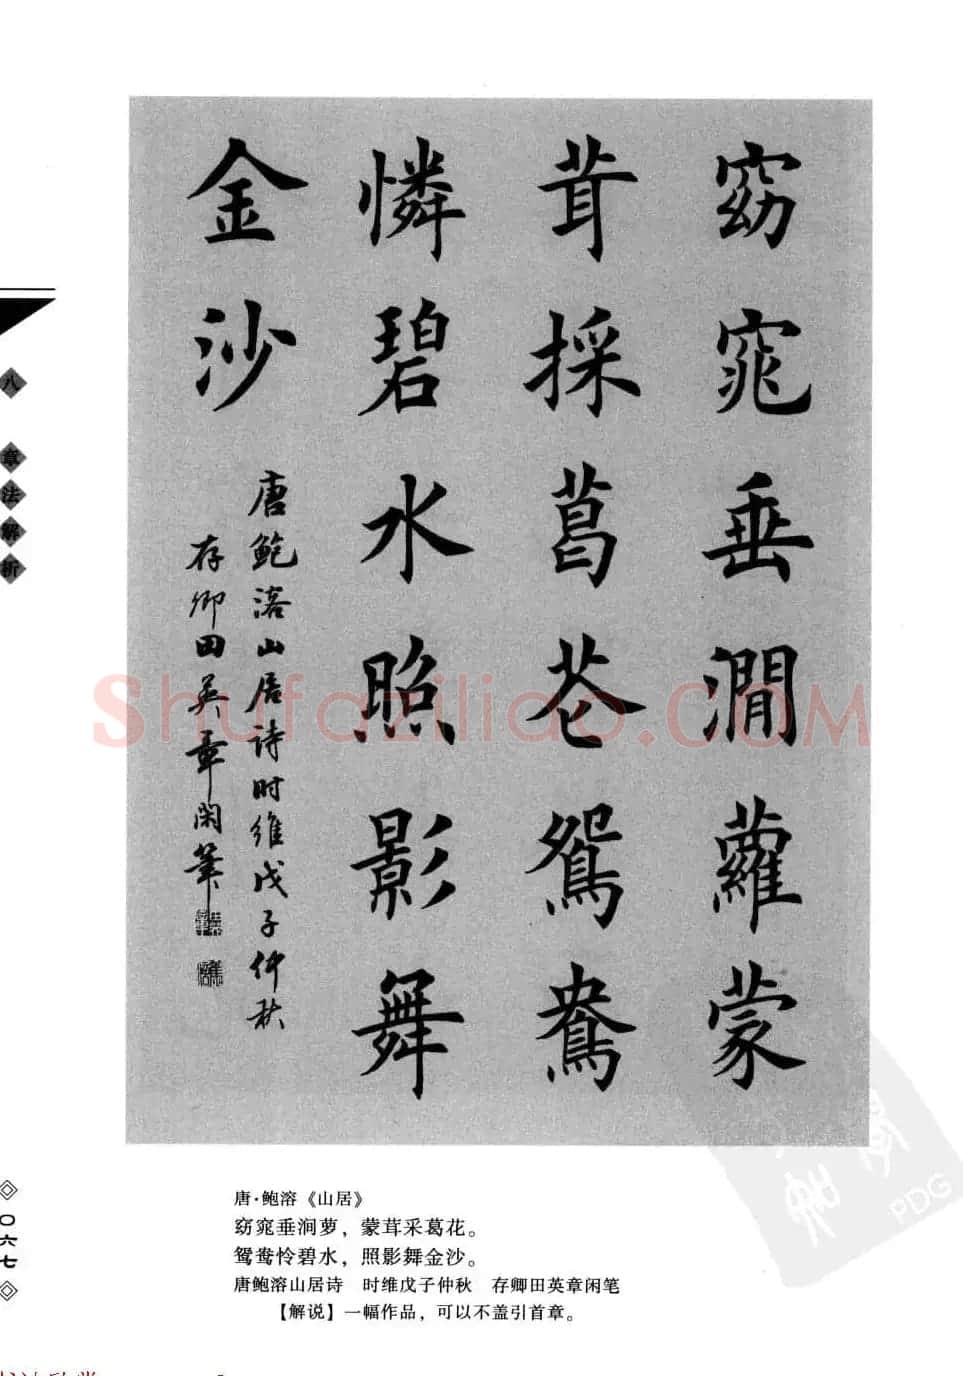 窈窕垂澗蘿蒙
茸採葛花鴛鴦
憐碧水照影舞
金沙
唐鲍溶山居诗时维戊子仲秋
存卿田英章闲笔
八 章法解析
〇六七
唐·鲍溶《山居》
窈窕垂涧萝，蒙茸采葛花。
鸳鸯怜碧水，照影舞金沙。
唐鲍溶山居诗 时维戊子仲秋 存卿田英章闲笔
【解说】一幅作品，可以不盖引首章。
Shufaziliao.COM
PDG